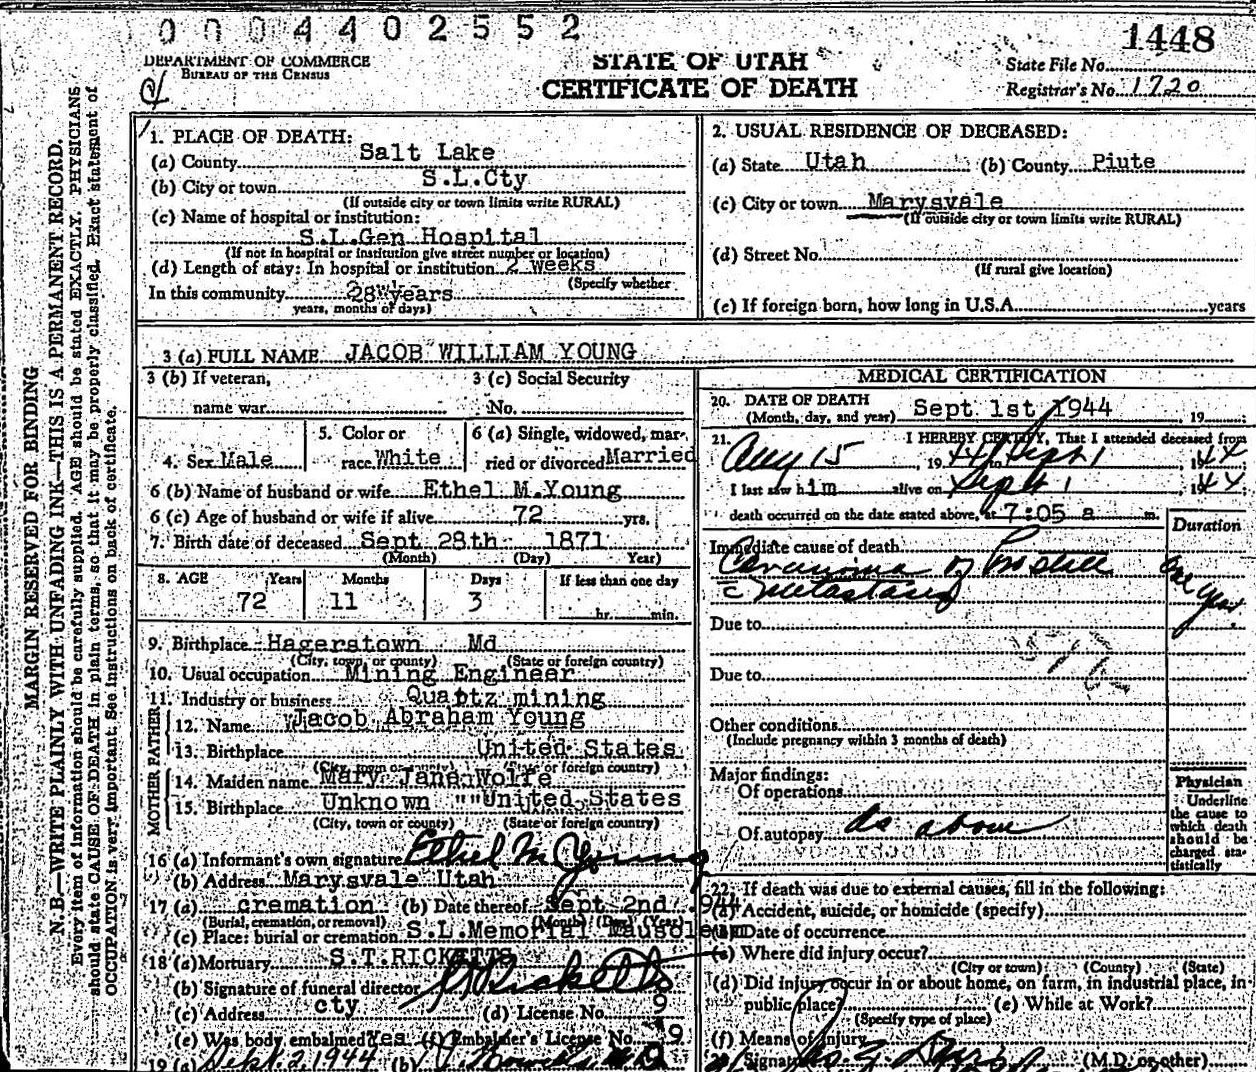 0004402552
1448
DEPARTMENT OF COMMERCE
BUREAU OF THE CENSUS
STATE OF UTAH
CERTIFICATE OF DEATH
State File No.
Registrar's No. 1720
MARGIN RESERVED FOR BINDING
N. B.—WRITE PLAINLY WITH UNFADING INK—THIS IS A PERMANENT RECORD.
Every item of information should be carefully supplied. AGE should be stated EXACTLY. PHYSICIANS
should state CAUSE OF DEATH in plain terms, so that it may be properly classified. Exact statement of
OCCUPATION is very important. See instructions on back of certificate.
1. PLACE OF DEATH:
(a) County Salt Lake
(b) City or town S.L.Cty
(If outside city or town limits write RURAL)
(c) Name of hospital or institution:
S.L.Gen Hospital
(If not in hospital or institution give street number or location)
(d) Length of stay: In hospital or institution 2 weeks
(Specify whether
In this community 28 years
years, months or days)
2. USUAL RESIDENCE OF DECEASED:
(a) State Utah (b) County Piute
(c) City or town Marysvale
(If outside city or town limits write RURAL)
(d) Street No.
(If rural give location)
(e) If foreign born, how long in U.S.A. years
3 (a) FULL NAME JACOB WILLIAM YOUNG
3 (b) If veteran, 3 (c) Social Security
name war No.
4. Sex Male 5. Color or race White 6 (a) Single, widowed, married or divorced Married
6 (b) Name of husband or wife Ethel M.Young
6 (c) Age of husband or wife if alive 72 yrs.
7. Birth date of deceased Sept 28th 1871
(Month) (Day) Year)
8. AGE Years Months Days If less than one day
72 11 3 hr. min.
9. Birthplace Hagerstown Md
(City, town, or county) (State or foreign country)
10. Usual occupation Mining Engineer
11. Industry or business Quabtz mining
FATHER
12. Name Jacob Abraham Young
13. Birthplace United States
(City, town or county) (State or foreign country)
MOTHER
14. Maiden name Mary Jane Wolfe
15. Birthplace Unknown ""United States
(City, town or county) (State or foreign country)
16 (a) Informant's own signature Ethel M Young
(b) Address Marysvale Utah
17 (a) cremation (b) Date thereof Sept 2nd 1944
(Burial, cremation, or removal) (Month) (Day) (Year)
(c) Place: burial or cremation S.L.Memorial Mausoleum
18 (a) Mortuary S.T.RICKETTS
(b) Signature of funeral director Ricketts
(c) Address cty (d) License No. 9
(e) Was body embalmed Yes (f) Embalmer's License No. 9
19 (a) Sept. 2, 1944 (b)
MEDICAL CERTIFICATION
20. DATE OF DEATH
(Month, day, and year) Sept 1st 1944 , 19
21. I HEREBY CERTIFY, That I attended deceased from
Aug 15 , 1944 to Sept 1 , 1944
I last saw him alive on Sept 1 , 1944
death occurred on the date stated above, at 7:05 a m.
Duration
Immediate cause of death
Carcinoma of Prostate
c metastases
One year
Due to
Due to
Other conditions
(Include pregnancy within 3 months of death)
Major findings:
Of operations
Of autopsy as above
Physician
Underline
the cause to
which death
should be
charged sta-
tistically
22. If death was due to external causes, fill in the following:
(a) Accident, suicide, or homicide (specify)
(b) Date of occurrence
(c) Where did injury occur?
(City or town) (County) (State)
(d) Did injury occur in or about home, on farm, in industrial place, in
public place? (e) While at Work?
(Specify type of place)
(f) Means of injury
23. Signature (M.D. or other)